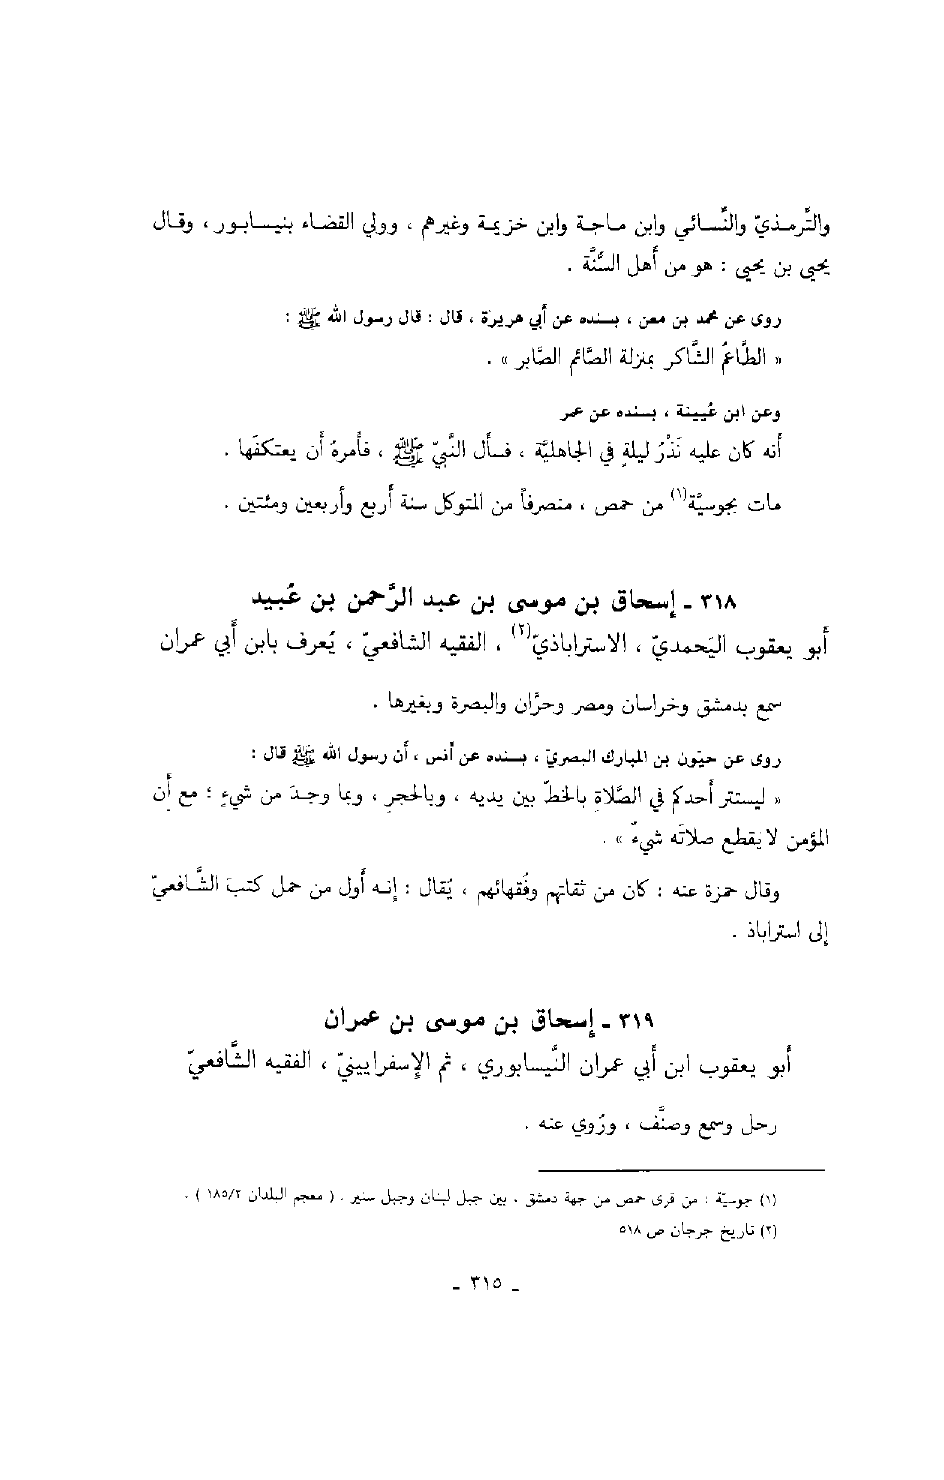 والتِّرمـذيّ والنَّسـائي وابن مـاجـة وابن خزيمة وغيرهم ، وولي القضـاء بنيـسـابـور ، وقـال
يحيى بن يحيى : هو من أهل السُّنَّة .
روى عن محمد بن معن ، بسنده عن أبي هريرة ، قال : قال رسول الله ﷺ :
« الطَّاعمُ الشَّاكر بمنزلة الصَّائم الصَّابر » .
وعن ابن عُيينة ، بسنده عن عمر
أنه كان عليه نَذْرُ ليلةٍ في الجاهليَّة ، فسأل النَّبيّ ﷺ ، فأمرهُ أن يعتكفَها .
مات بجوسيَّة(١) من حمص ، منصرفاً من المتوكل سنة أربع وأربعين ومئتين .
٣١٨ ـ إسحاق بن موسى بن عبد الرَّحمن بن عُبيد
أبو يعقوب اليَحمديّ ، الاستراباذيّ(٢) ، الفقيه الشافعيّ ، يُعرف بابن أبي عمران
سمع بدمشق وخراسان ومصر وحرَّان والبصرة وبغيرها .
روى عن حيّون بن المبارك البصريّ ، بسنده عن أنس ، أن رسول الله ﷺ قال :
« ليستتر أحدكم في الصَّلاةِ بالخطّ بين يديه ، وبالحجرِ ، وبما وجدَ من شيءٍ ؛ مع أن
المؤمن لا يقطع صلاتَه شيءٌ » .
وقال حمزة عنه : كان من ثقاتهم وفُقهائهم ، يُقال : إنـه أول من حمل كتبَ الشَّافعيّ
إلى استراباذ .
٣١٩ ـ إسحاق بن موسى بن عمران
أبو يعقوب ابن أبي عمران النَّيسابوري ، ثم الإسفرايينيّ ، الفقيه الشَّافعيّ
رحل وسمع وصنَّف ، ورُوي عنه .
(١) جوسيّة : من قرى حمص من جهة دمشق ، بين جبل لبنان وجبل سنير . ( معجم البلدان ١٨٥/٢ ) .
(٢) تاريخ جرجان ص ٥١٨
ـ ٣١٥ ـ